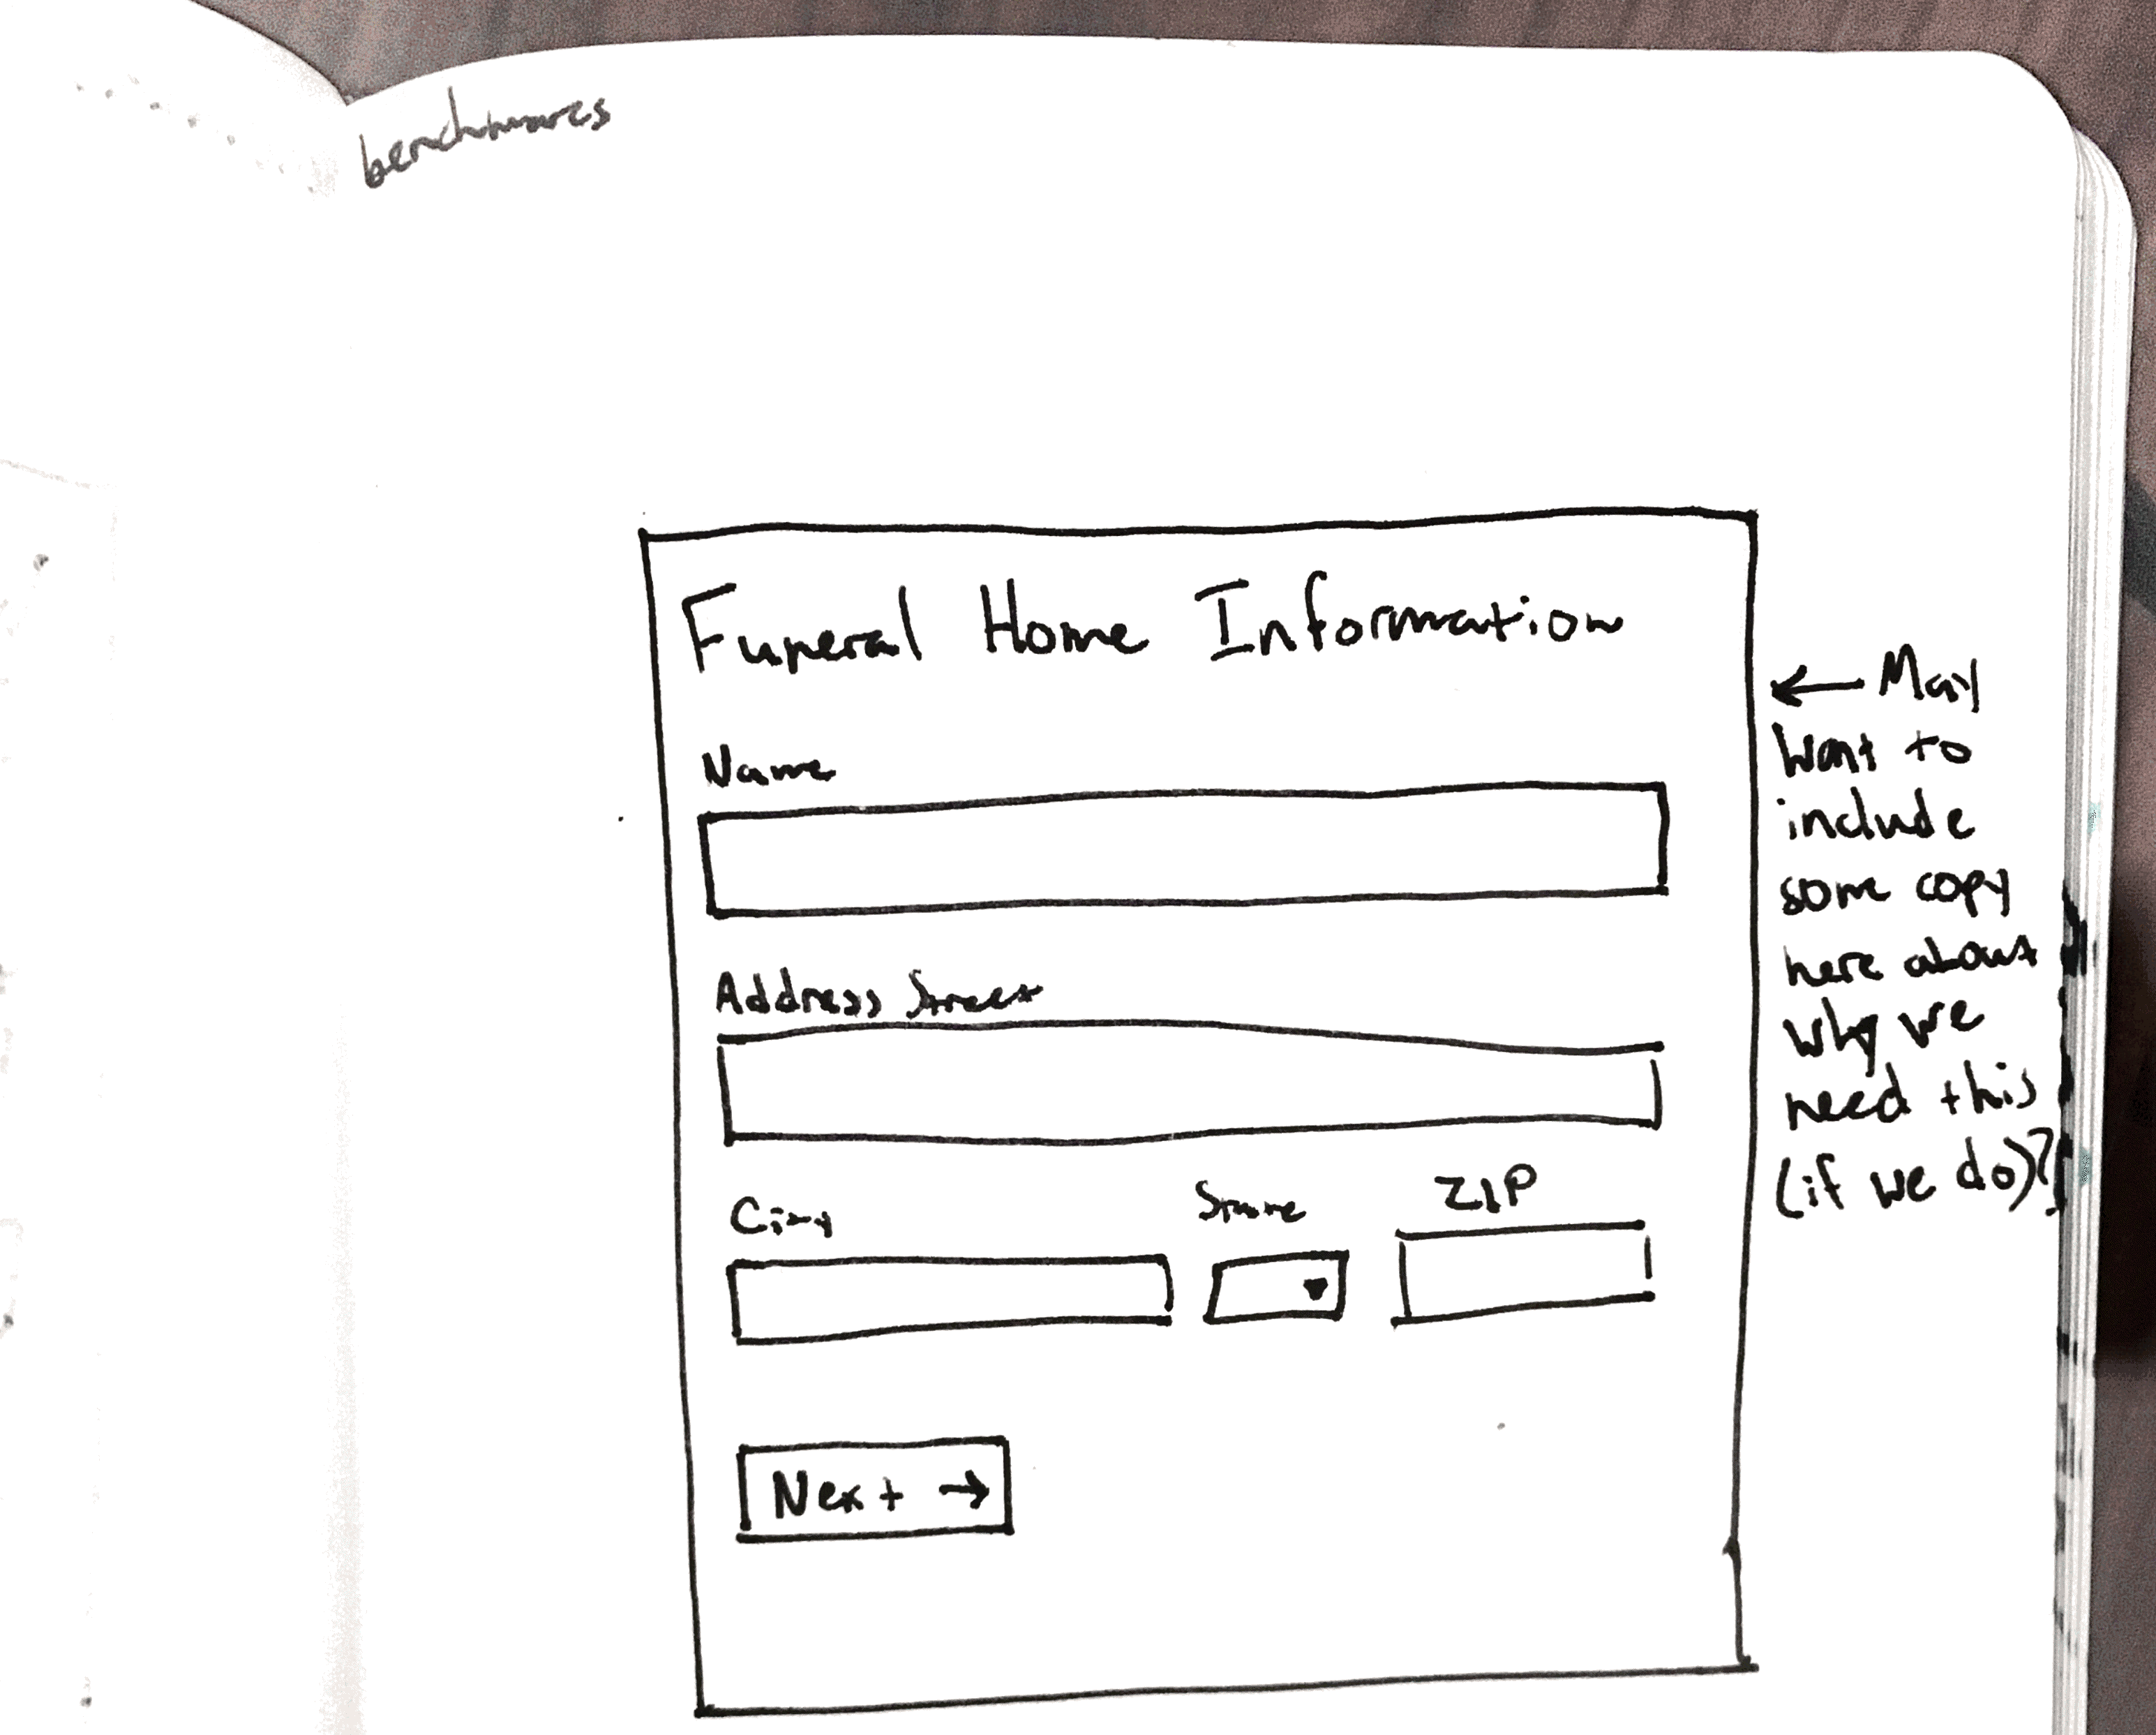 benchmarks
Funeral Home Information
Name
Address Street
City State ZIP
Next →
← May
want to
include
some copy
here about
why we
need this
(if we do)?